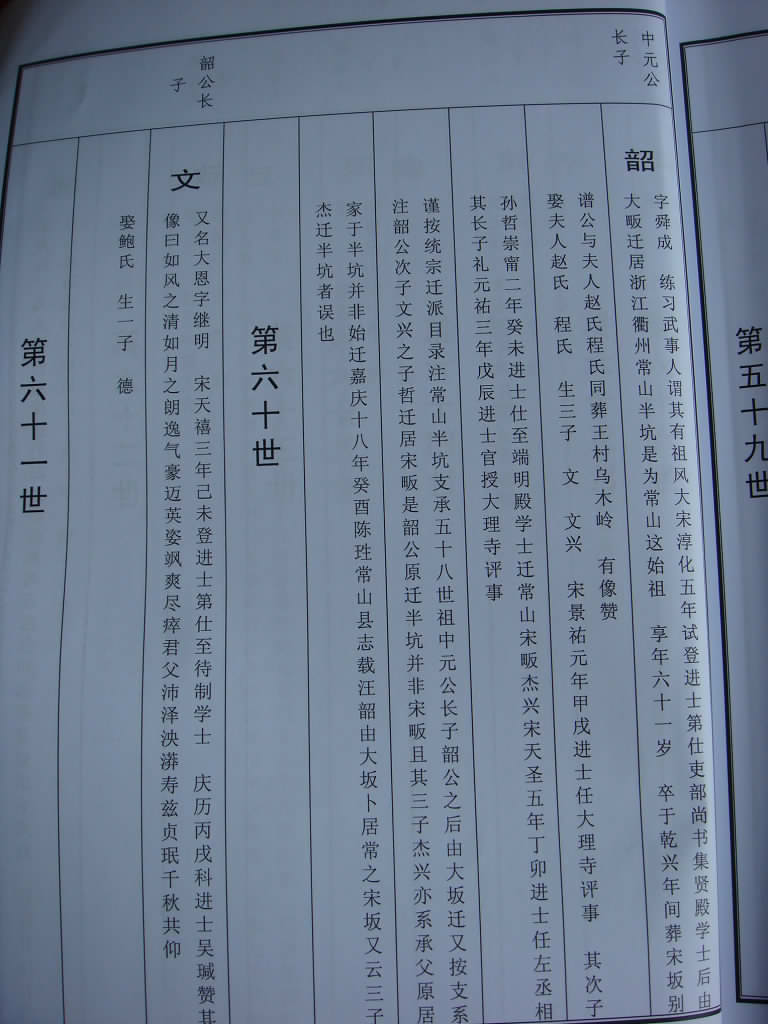 第五十九世
中元公
长子
韶
字舜成 练习武事人谓其有祖风大宋淳化五年试登进士第仕吏部尚书集贤殿学士后由
大畈迁居浙江衢州常山半坑是为常山这始祖 享年六十一岁 卒于乾兴年间葬宋坂别
谱公与夫人赵氏程氏同葬王村乌木岭 有像赞
娶夫人赵氏 程氏 生三子 文 文兴 宋景祐元年甲戌进士任大理寺评事 其次子
孙哲崇甯二年癸未进士仕至端明殿学士迁常山宋畈杰兴宋天圣五年丁卯进士任左丞相
其长子礼元祐三年戊辰进士官授大理寺评事
谨按统宗迁派目录注常山半坑支承五十八世祖中元公长子韶公之后由大坂迁又按支系
注韶公次子文兴之子哲迁居宋畈是韶公原迁半坑并非宋畈且其三子杰兴亦系承父原居
家于半坑并非始迁嘉庆十八年癸酉陈甡常山县志载汪韶由大坂卜居常之宋坂又云三子
杰迁半坑者误也
第六十世
韶公长
子
文
又名大恩字继明 宋天禧三年己未登进士第仕至待制学士 庆历丙戌科进士吴瑊赞其
像曰如风之清如月之朗逸气豪迈英姿飒爽尽瘁君父沛泽泱漭寿兹贞珉千秋共仰
娶鲍氏 生一子 德
第六十一世